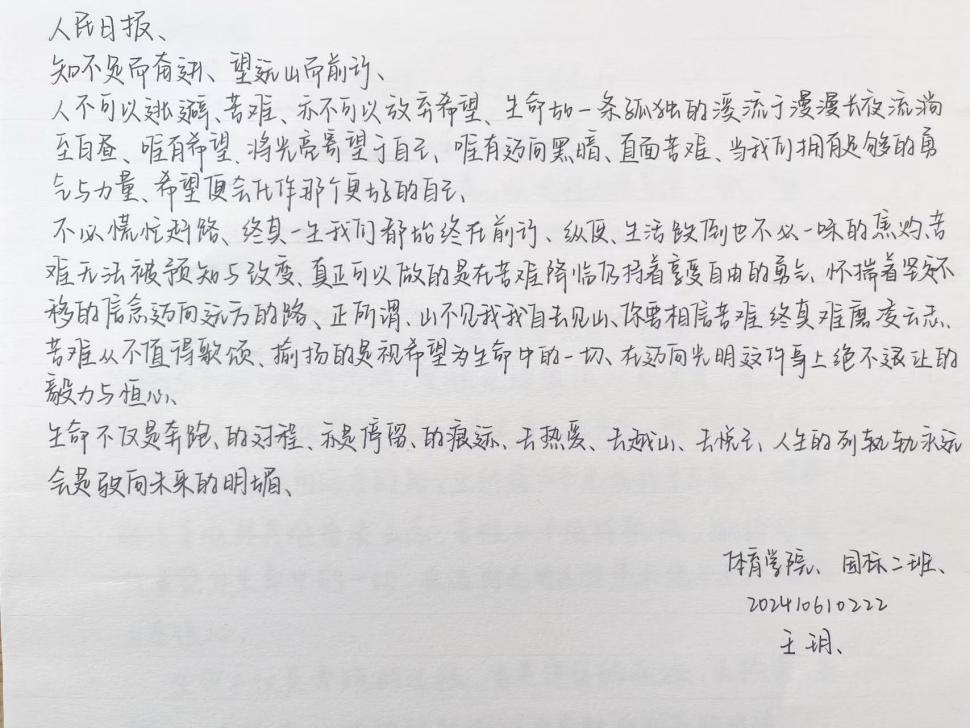 人民日报、
知不足而奋进、望远山而前行、
人不可以逃避、苦难、亦不可以放弃希望、生命如一条孤独的漫流于漫漫长夜流淌
至白昼、唯有希望、将光亮寄望于自己、唯有迈向黑暗、直面苦难、当我们拥有足够的勇
气与力量、希望便会化作那个更好的自己、
不必慌忙赶路、终其一生我们都始终在前行、纵使、生活跌倒也不必一味的焦灼、苦
难无法被预知与改变、真正可以做的是在苦难降临仍持着享受自由的勇气、怀揣着坚定不
移的信念迈向远方的路、正所谓、山不见我我自去见山、你要相信苦难终其难磨凌云志、
苦难从不值得歌颂、揄扬的是视希望为生命中的一切、在迈向光明这件事上绝不退让的
毅力与恒心、
生命不仅是奔跑、的过程、亦是停留、的痕迹、去热爱、去越山、去悦己、人生的列轨轨永远
会是驶向未来的明媚、
体育学院、国标二班、
202410610222
王玥、